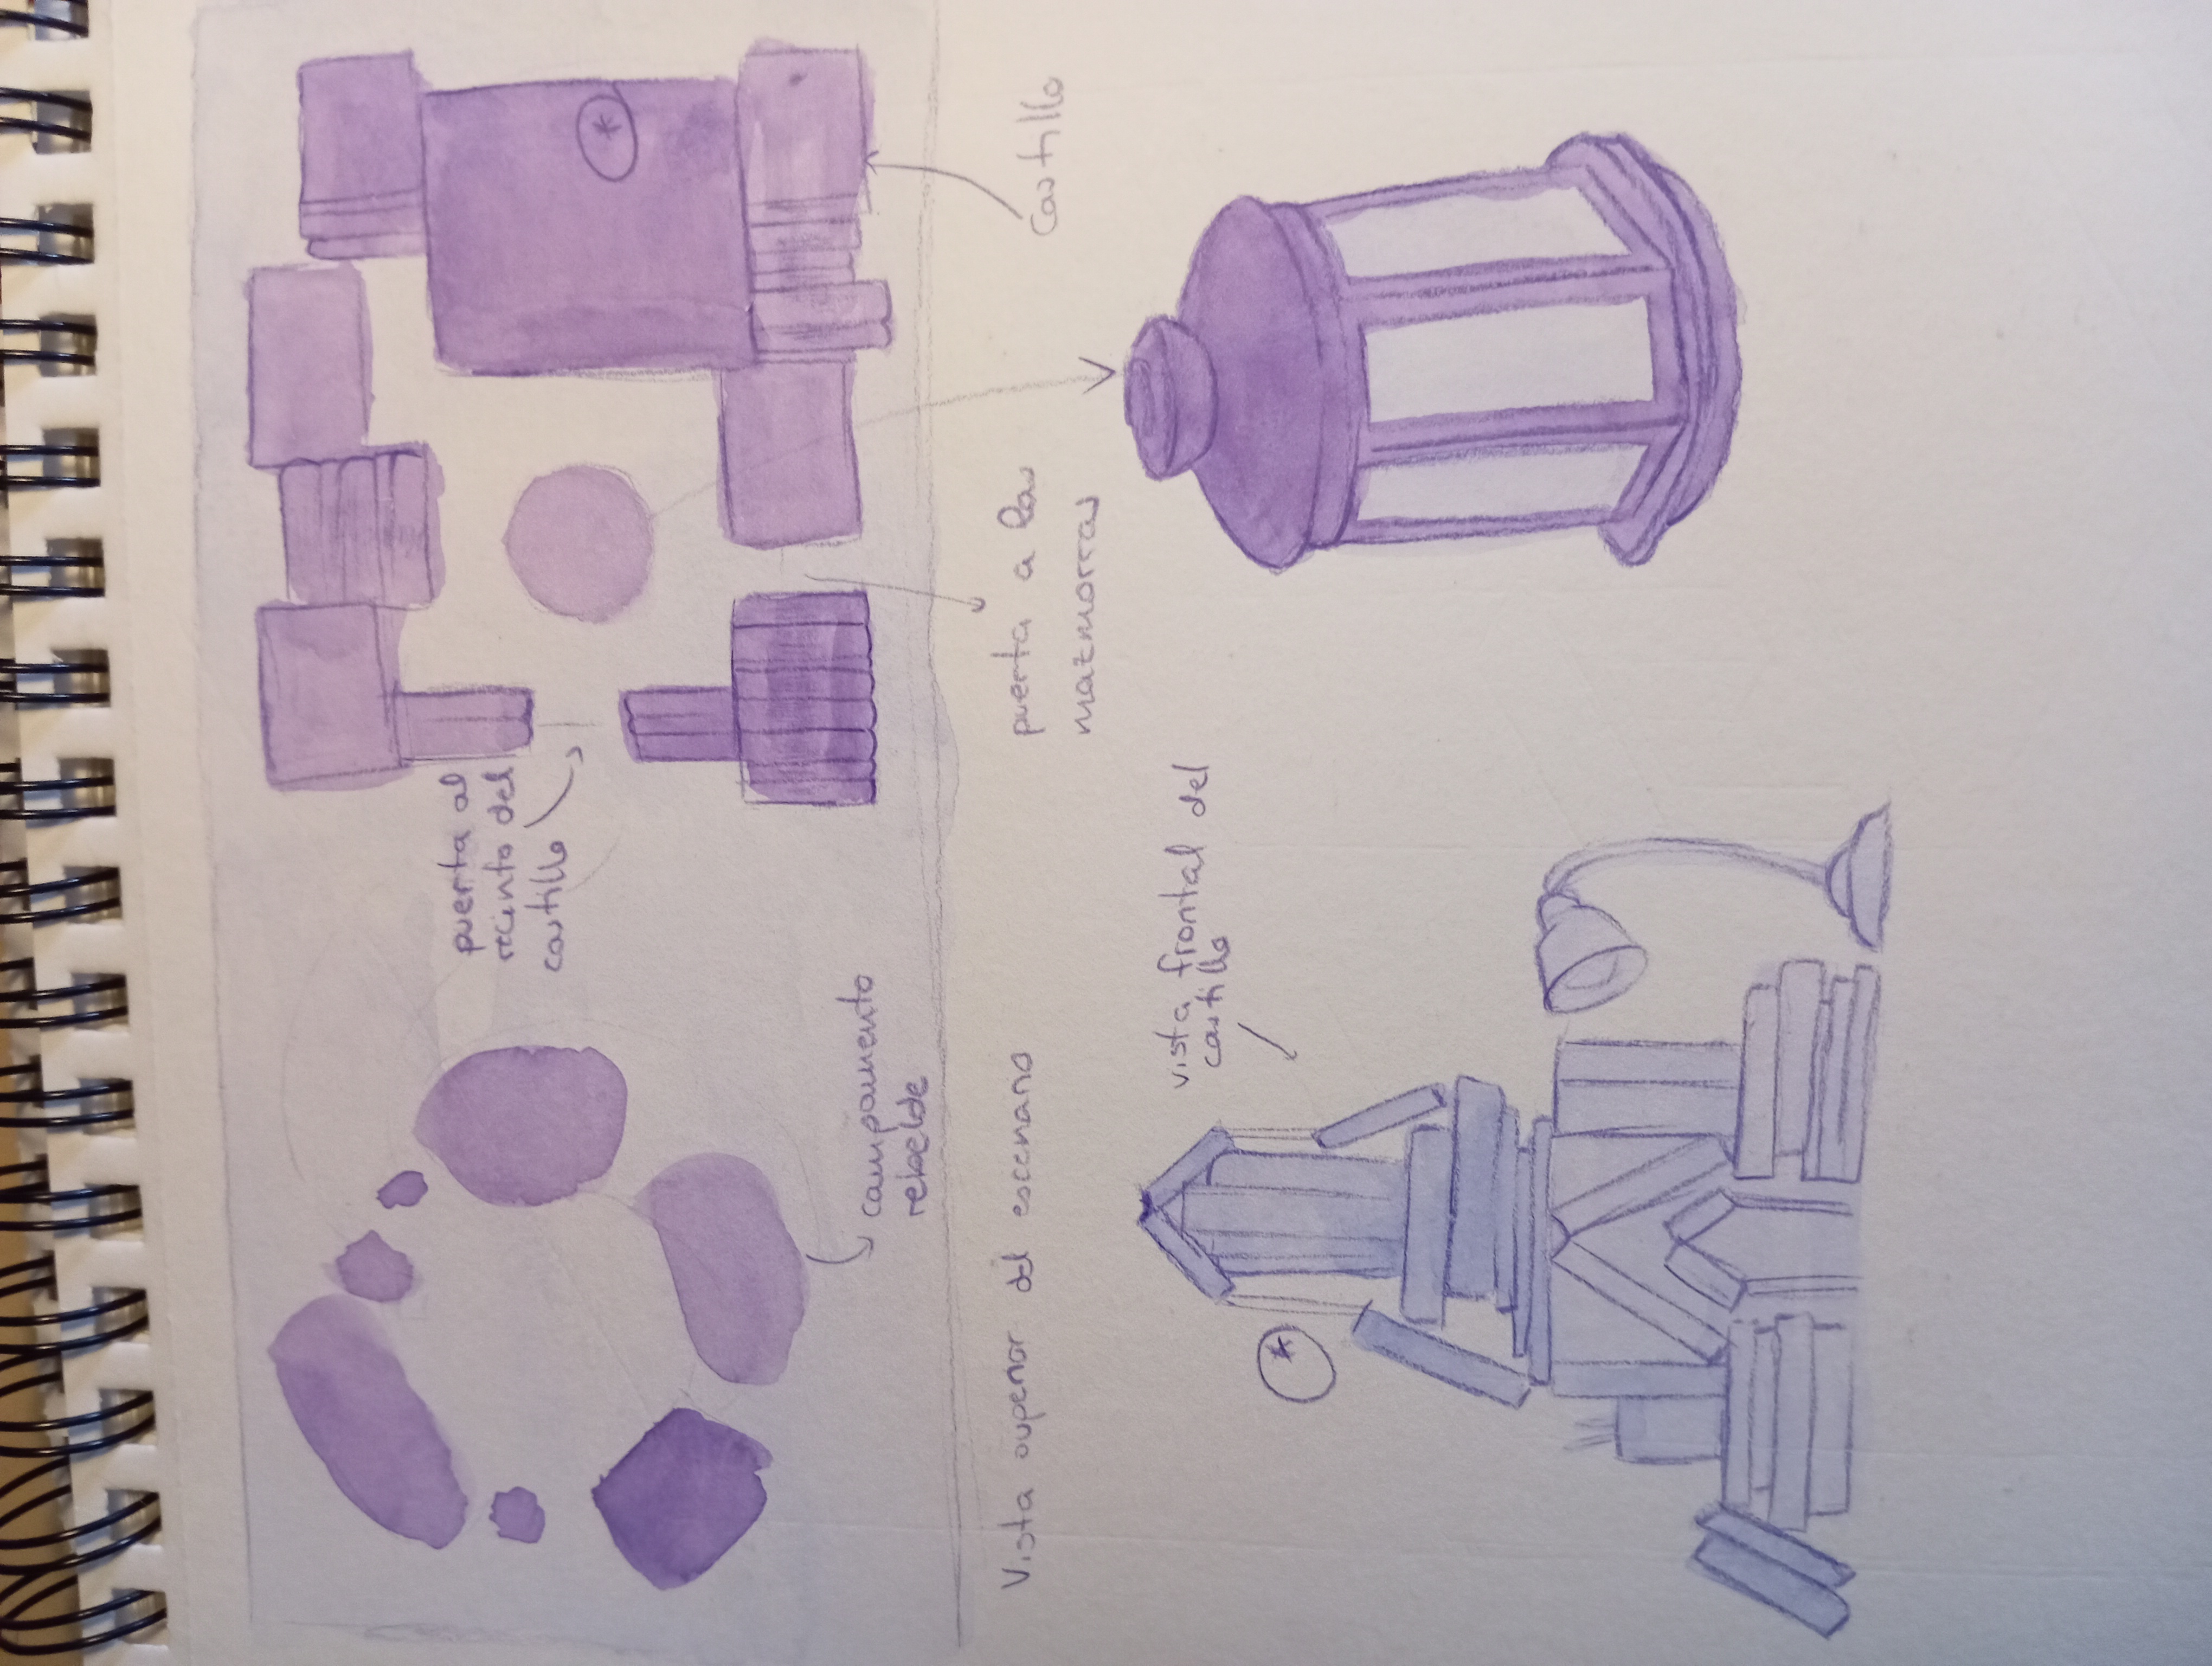 puerta al
recinto del
castillo
campamento
rebelde
Vista superior del escenario
puerta a las
mazmorras
castillo
vista frontal del
castillo